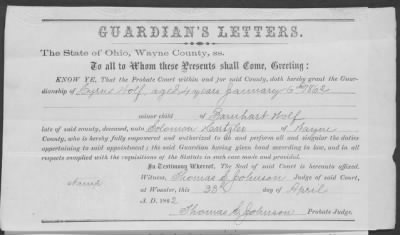 GUARDIAN'S LETTERS.
The State of Ohio, Wayne County, ss.
To all to Whom these Presents shall Come, Greeting:
KNOW YE, That the Probate Court within and for said County, doth hereby grant the Guar-
dianship of Cyrus Wolf, aged 4 years January 6th 1862
minor child of Barnhart Wolf
late of said county, deceased, unto Solomon Hartzler of Wayne
County, who is hereby fully empowered and authorized to do and perform all and singular the duties
appertaining to said appointment; the said Guardian having given bond according to law, and in all
respects complied with the requisitions of the Statute in such case made and provided.
In Testimony Whereof, The Seal of said Court is hereunto affixed.
Witness, Thomas A Johnson Judge of said Court,
stamp at Wooster, this day of April
A. D. 1862
Thomas A Johnson Probate Judge.